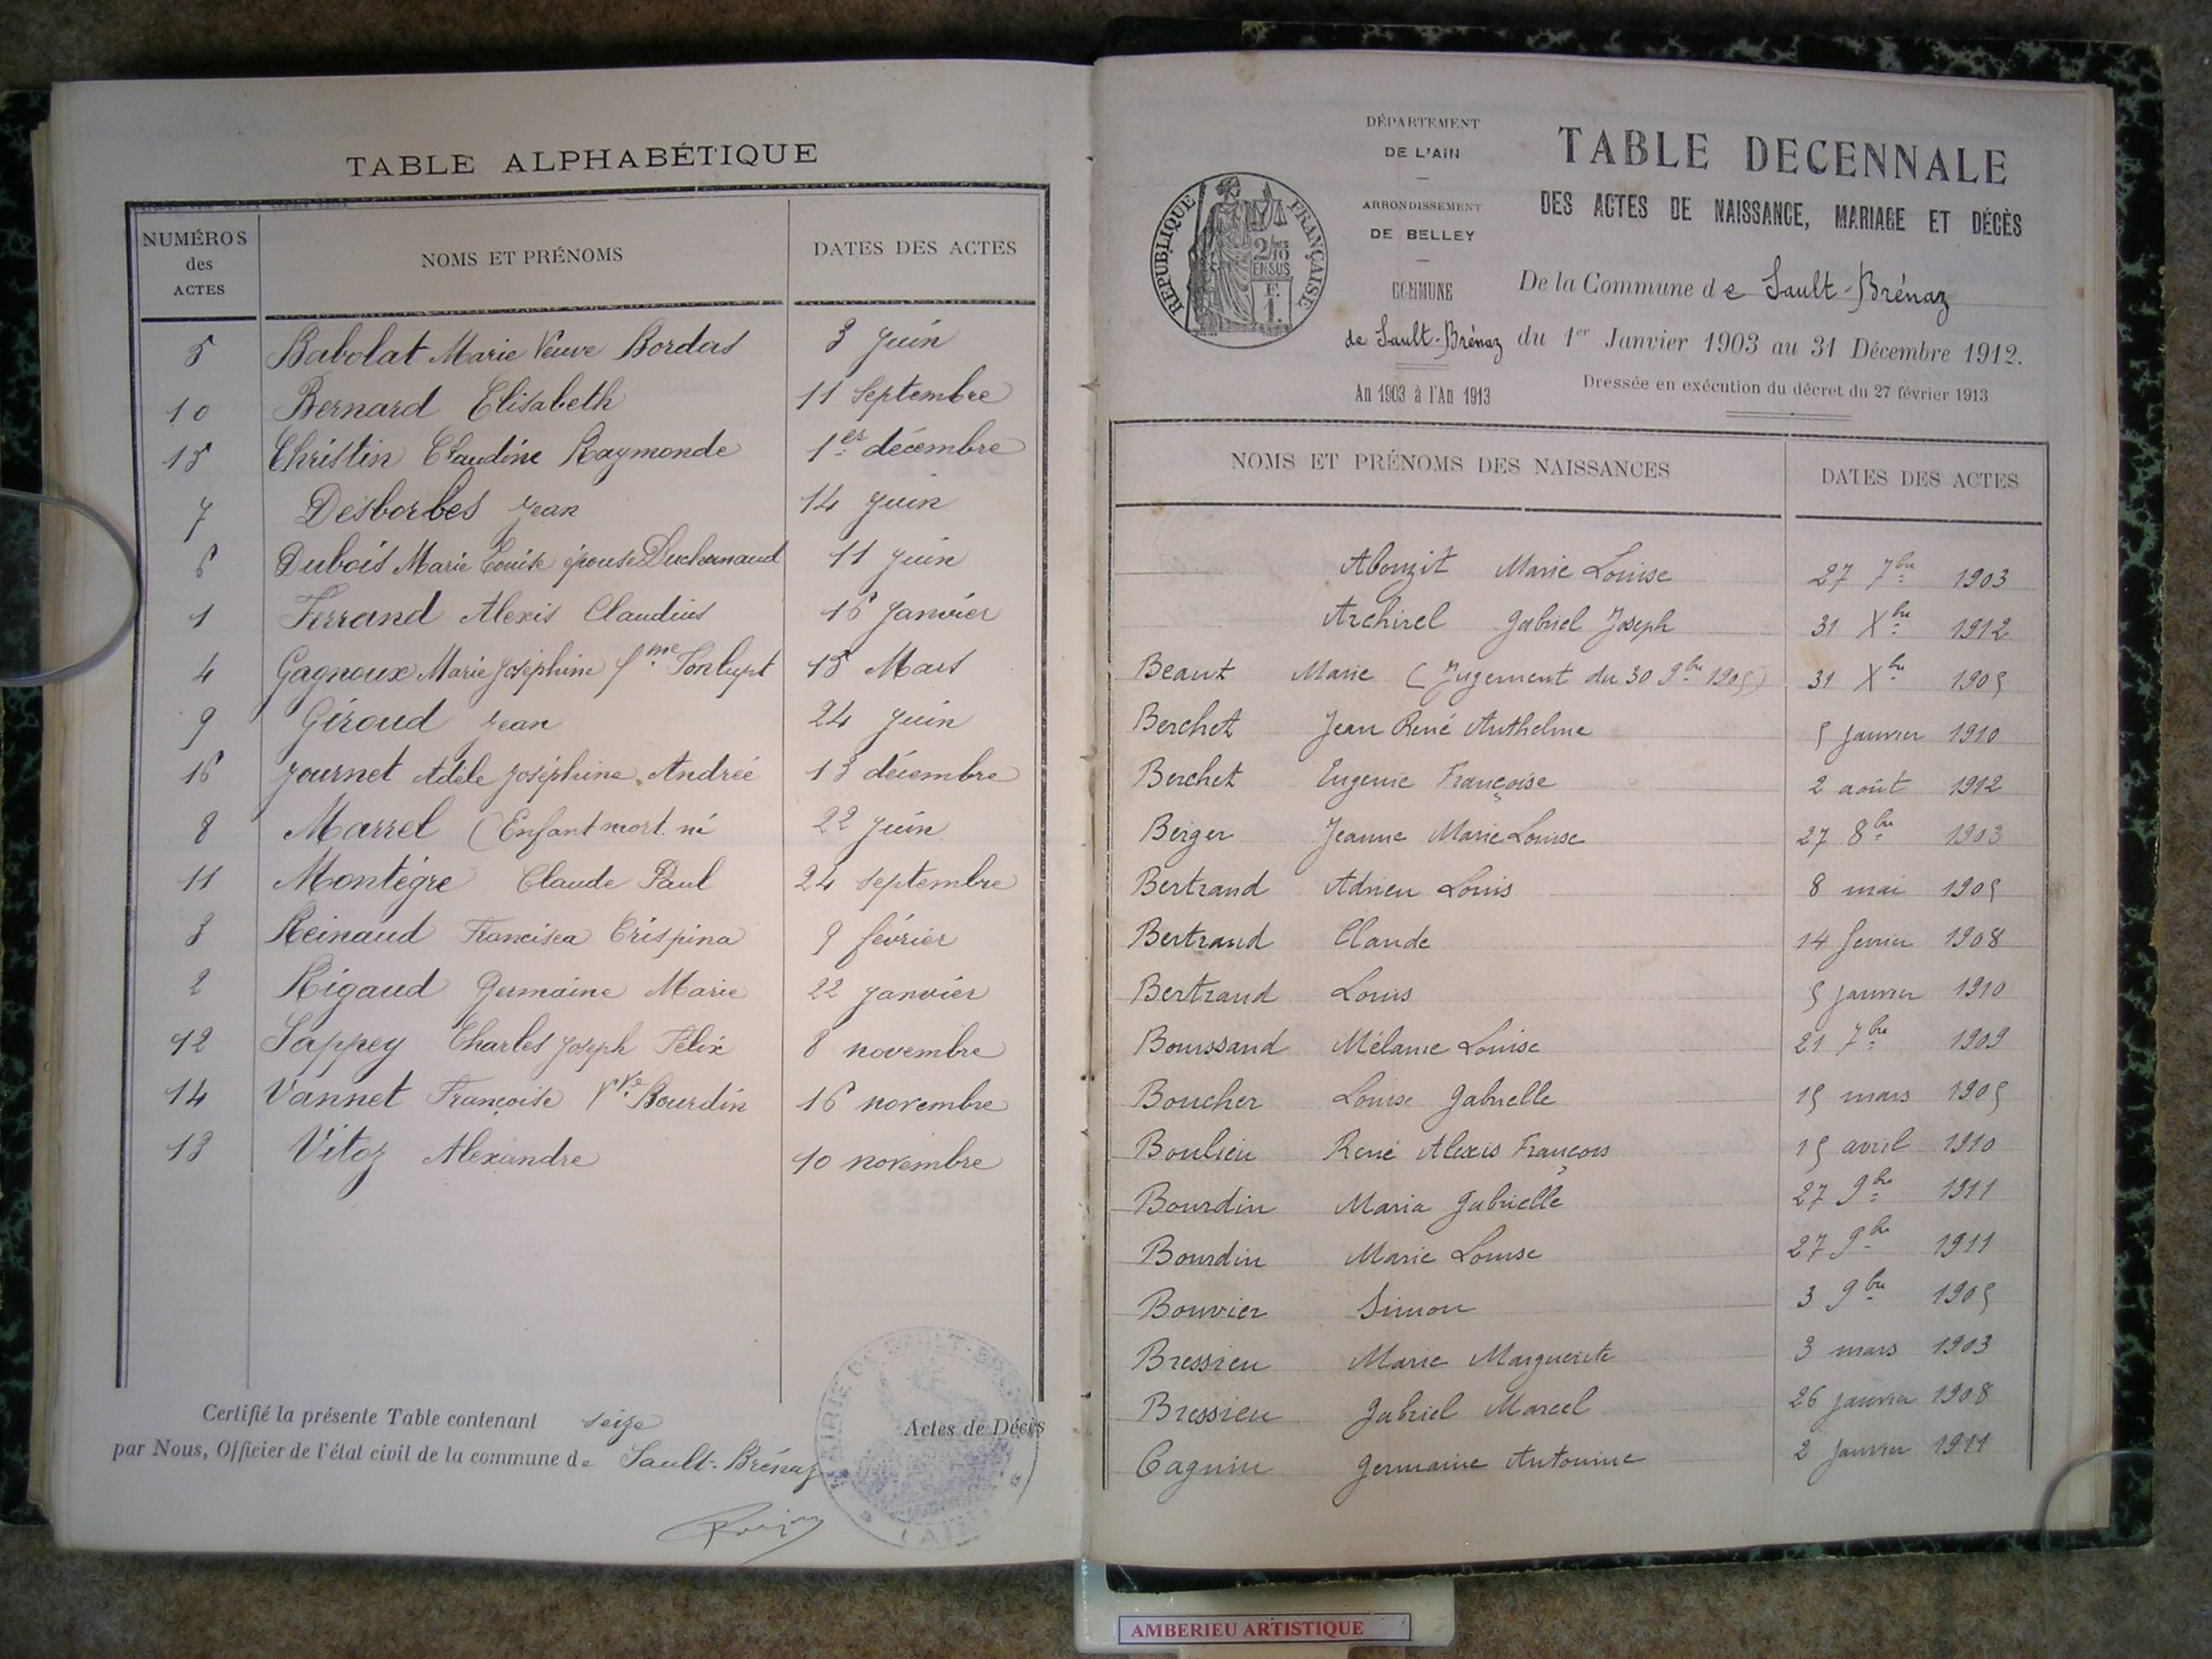 TABLE ALPHABÉTIQUE
NUMÉROS des ACTES NOMS ET PRÉNOMS DATES DES ACTES
5 Babolat Marie Veuve Bordas 3 Juin
10 Bernard Elisabeth 11 Septembre
15 Christin Claudine Raymonde 1er décembre
7 Desborbes Jean 14 Juin
6 Dubois Marie Louise épouse Duchamaud 11 Juin
1 Ferrand Alexis Claudius 16 Janvier
4 Gagnoux Marie Joséphine fme 15 Mars
9 Giroud Jean 24 Juin
16 Journet Adèle Joséphine Andrée 13 décembre
8 Marrel (Enfant mort. né 22 Juin
11 Montégre Claude Paul 24 septembre
3 Reinaud Francisca Crispina 9 février
2 Rigaud Germaine Marie 22 Janvier
12 Sappey Charles Joseph Félix 8 novembre
14 Vannet Françoise Vve Bourdin 16 novembre
13 Vitoz Alexandre 10 novembre
Certifié la présente Table contenant seize Actes de Décès
par Nous, Officier de l'état civil de la commune de Sault-Brénaz
DÉPARTEMENT
DE L'AIN
ARRONDISSEMENT
DE BELLEY
COMMUNE
de Sault-Brénaz
An 1903 à l'An 1913
RÉPUBLIQUE FRANÇAISE
TABLE DECENNALE
DES ACTES DE NAISSANCE, MARIAGE ET DÉCÈS
De la Commune de Sault-Brénaz
du 1er Janvier 1903 au 31 Décembre 1912.
Dressée en exécution du décret du 27 février 1913
NOMS ET PRÉNOMS DES NAISSANCES DATES DES ACTES
Abouzit Marie Louise 27 7bre 1903
Archirel Gabriel Joseph 31 Xbre 1912
Beaut Marie (Jugement du 30 9bre 1905) 31 Xbre 1905
Berchet Jean René Anthelme 5 Janvier 1910
Berchet Eugenie Françoise 2 août 1912
Berger Jeanne Marie Louise 27 8bre 1903
Bertrand Adrien Louis 8 mai 1905
Bertrand Claude 14 fevrier 1908
Bertrand Louis 5 janvier 1910
Bourssaud Mélanie Louise 21 7bre 1909
Boucher Louise Gabrielle 15 mars 1905
Boulieu René Alexis François 15 avril 1910
Bourdin Maria Gabrielle 27 9bre 1911
Bourdin Marie Louise 27 9bre 1911
Bouvier Simon 3 9bre 1905
Bressieu Marie Marguerite 3 mars 1903
Bressieu Gabriel Marcel 26 janvier 1908
Cagnin Germaine Antonine 2 Janvier 1911
AMBERIEU ARTISTIQUE